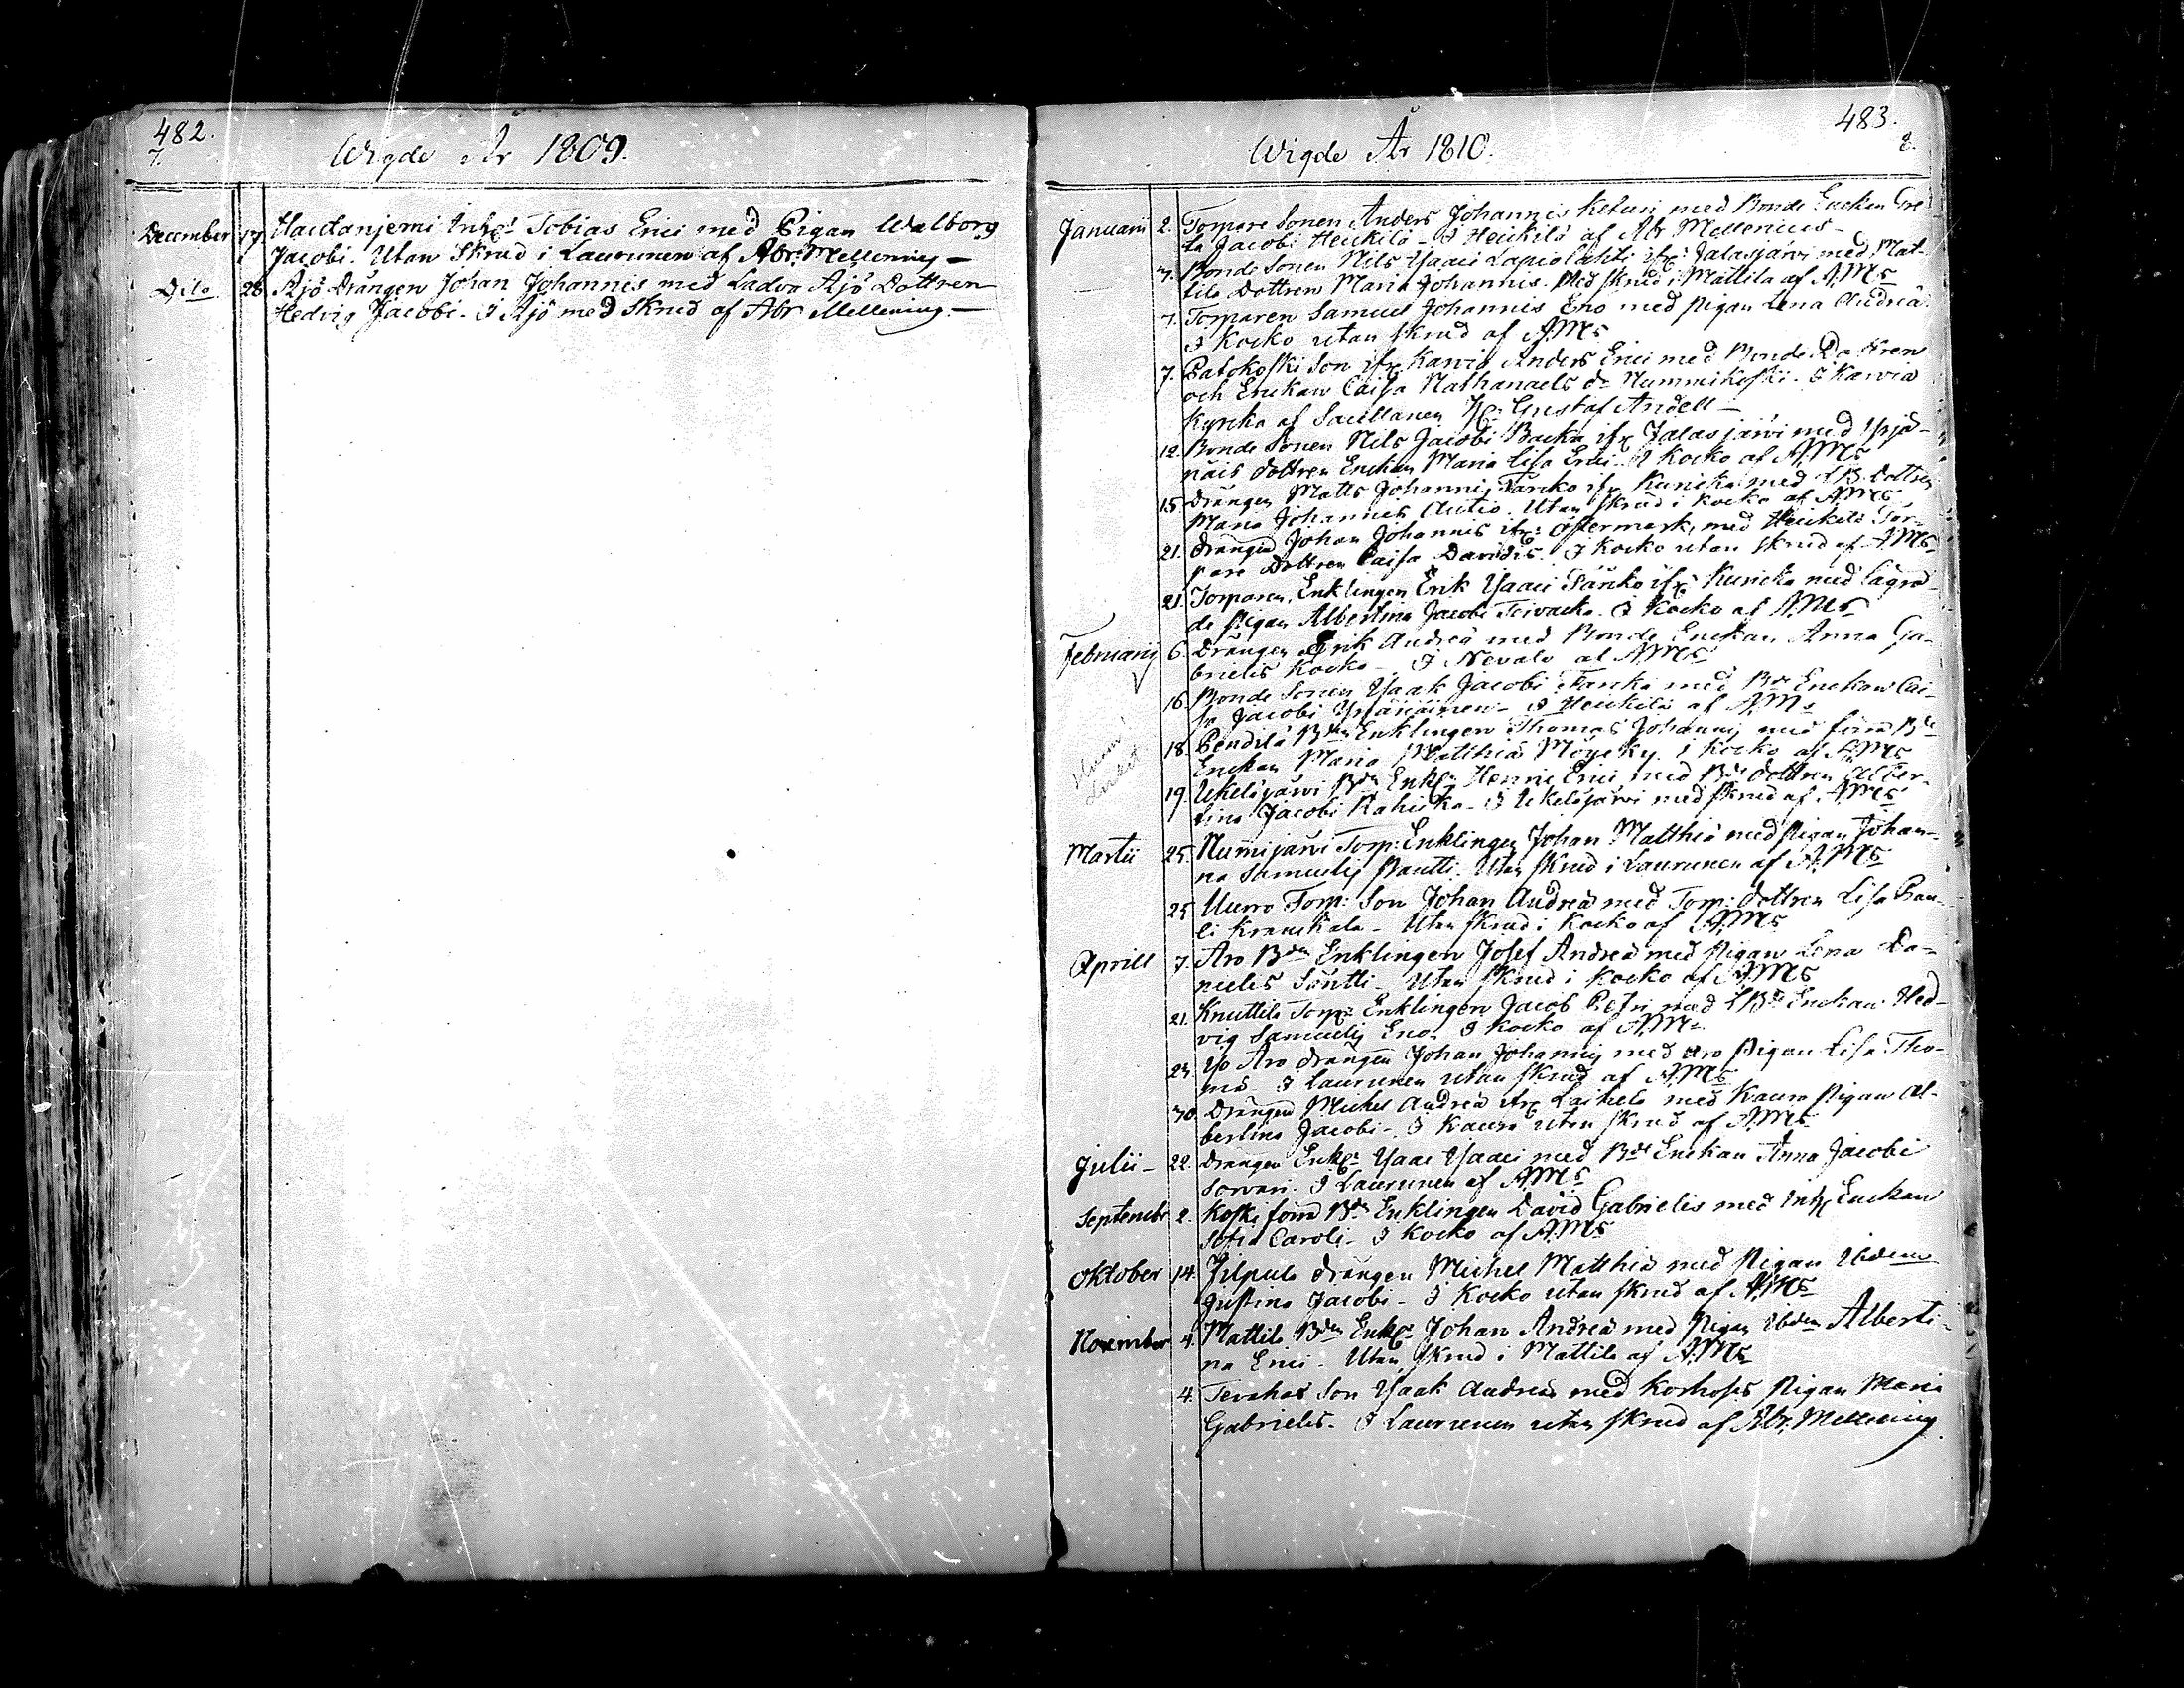 482.
7.
Wigde År 1809.
December 17 Hautanjemi Inhs: Tobias Erici med Pigan Walborg
Jacobi. Utan Skrud i Laurunen af Abr: Mellenius —
Dito 28 Äjö Drängen Johan Johannis med Ladvo Äjö Dottren
Hedvig Jacobi. I Äjö med Skrud af Abr Mellenius. —
483.
8.
Wigde År 1810.
Januarii 2. Torpare Sonen Anders Johannis Keturi med Bonde Enckan Gre
ta Jacobi Heickilä - I Heickilä af Abr Mellenius -
7. Bonde Sonen Nils Isaaci Lapiolahti ifr: Jalasjärvi med Mat-
tila Dottren Maria Johannis. Med skrud i Mattila af A.Ms
7. Torparen Samuel Johannis Eno med pigan Lena Andreæ
I Kocko utan skrud af A.Ms
7. Patokoski Son ifr: Karvia Anders Erici med Bonde Dottren
och Enckan Caisa Nathanaels dr Nummikoski. I Karvia
Kyrcka af Sacellanen Hr: Gustaf Andell —
12. Bonde Sonen Nils Jacobi Backa ifr Jalasjärvi med
dottren Enckan Maria Lisa Erici - I Kocko af A.Ms
15 Drängen Matts Johannis ifr Kuricka med LB. dottren
Maria Johannis Autio. Utan skrud i Kocko af A.Ms
21. Drängen Johan Johannis ifr: Östermark, med Heickilä Tor-
pare Dottren Caisa Davidis. I Kocko utan skrud af A.Ms
21. Torparen, Enklingen Erik Isaaci ifr: Kuricka med lägra-
de pigan Albertina Jacobi. I Kocko af A.Ms
Februarij 6. Drängen Erik Andreæ med Bonde Enckan Anna Ga-
brielis Kocko - I Nevala af A.Ms
16. Bonde Sonen Isaak Jacobi med Bde Enckan Cai-
sa Jacobi - I Heickilä af A.Ms
18. Pendilä Bden Enklingen Thomas Johannis med förra Bde
Enckan Maria Matthiæ. I Kocko af A.Ms
19. Ikeläjärvi Bden Enkl: Henric Erici med Bde dottren Alber-
tina Jacobi Rahicka - I Ikeläjärvi med skrud af A.Ms
Martii 25. Numijärvi Torp: Enklingen Johan Matthiæ med pigan Johan-
na Samuelis Pantti. Utan skrud i Laurunen af A.Ms
25 Uuro Torp: Son Johan Andreæ med Torp: dottren Lisa Pau-
li - Utan skrud i Kocko af A.Ms
Aprill 7. Aro Bden Enklingen Josef Andreæ med pigan Lena Da-
nielis Säntti - Utan skrud i Kocko af A.Ms
21. Knuttila Torp: Enklingen Jacob Petri med LBde Enckan Hed-
vig Samuelis Eno - I Kocko af A.Ms
23. Yo Aro drängen Johan Johannis med Aro pigan Lisa Tho-
mæ - I Laurunen utan skrud af A.Ms
30. Drängen Michel Andreæ ifr med Kaura pigan Al-
bertina Jacobi - I Kaura utan skrud af A.Ms
Julii - 22. Drängen Enkl: Isaac Isaaci med Bde Enckan Anna Jacobi
Sorvari. I Laurunen af A.Ms
Septembr 2. Koski förra Bden Enklingen David Gabrielis med Inhs Enckan
Sofia Caroli - I Kocko af A.Ms
Oktober 14. Jilpula drängen Michel Matthiæ med pigan Ibidem
Justina Jacobi - I Kocko utan skrud af A.Ms
November 4. Mattila Bden Enkl: Johan Andreæ med pigan Ibdem Alberti-
na Erici - Utan skrud i Mattila af A.Ms
4. Son Isaak Andreæ med Korhosis pigan Maria
Gabrielis - I Laurunen utan skrud af Abr. Mellenius.